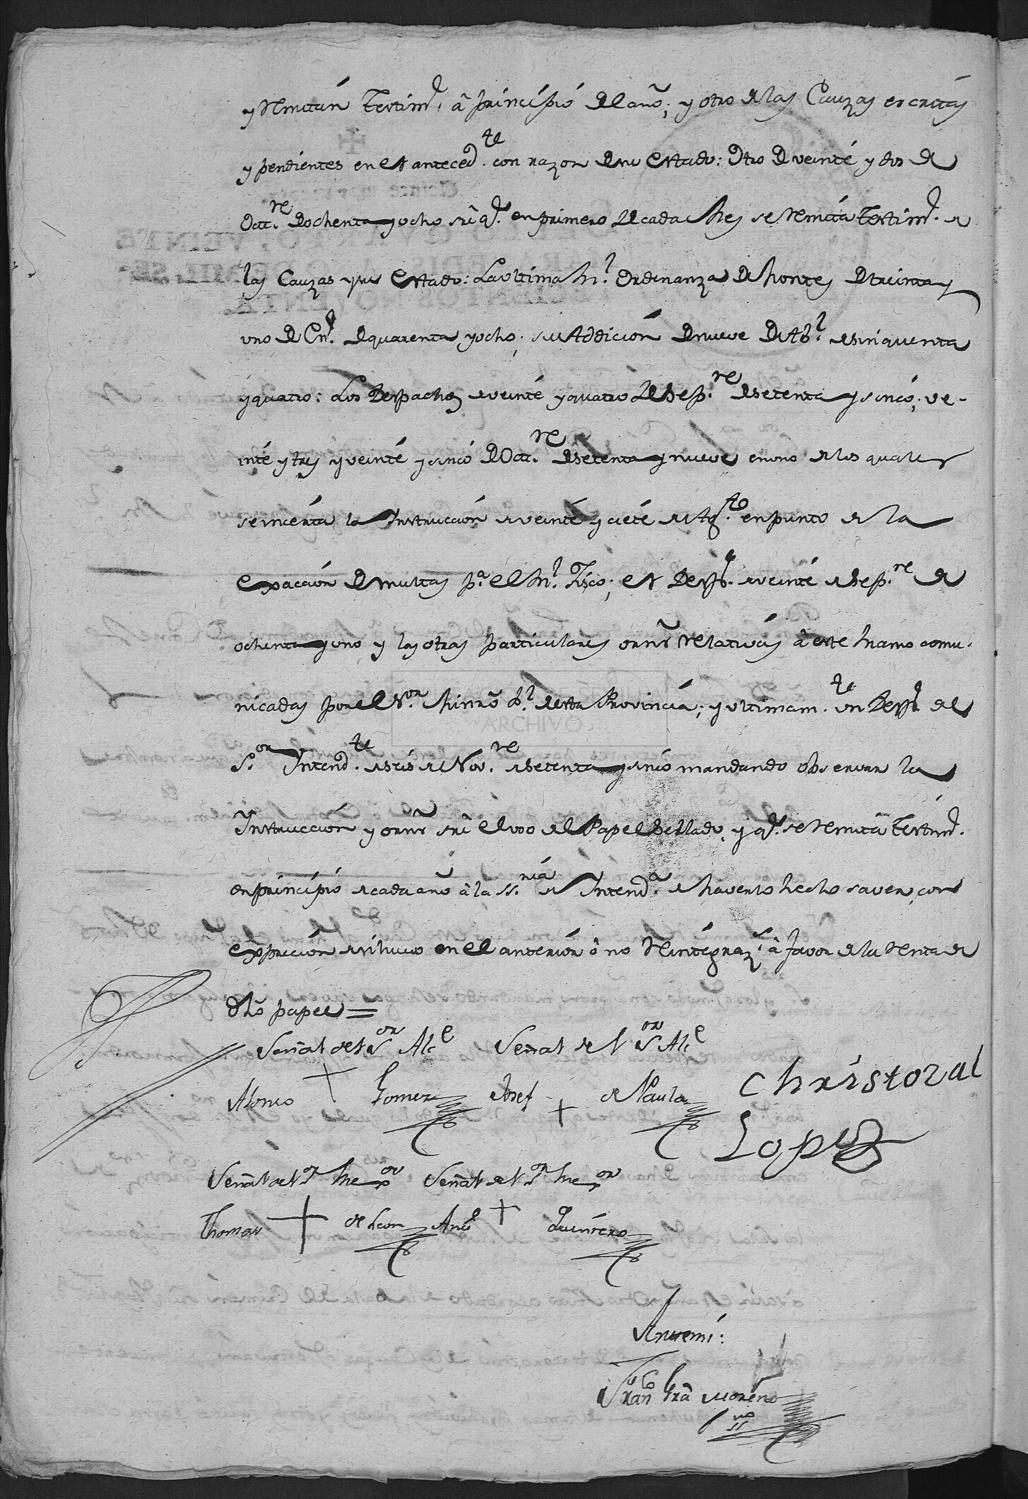 y remitan testimᵒ. â principio del año; y otro de las Cauzas escritas
y pendientes en el antecedᵗᵉ. con razon de su estado: Otro de veinte y dos de
Octʳᵉ. de ochenta y ocho srê qᵉ. en primero de cada Mes se remita testimᵒ. de
las Cauzas y su estado: La ultima Rˡ. Ordenanza de Montes de treinta y
uno de Enᵒ. de quarenta y ocho; su Addicion de nueve de Abˡ. de sinquenta
y quatro: Los Despachos de veinte y quatro de Sepʳᵉ. de setenta y sinco; ve-
inte y tres y veinte y sinco de Octʳᵉ. de setenta y nueve en uno de los quales
se incerta la Instruccion de veinte y ciete de Agᵗᵒ. en punto de la
exaccion de multas pᵃ. el Rˡ. Fisco; el Despᵒ. de veinte de Sepʳᵉ. de
ochenta y uno y las otras particulares ornˢ relativas â este Ramo comu-
nicadas por el Sᵒʳ. Minrô Pˡ. de esta Provincia; y ultimamᵗᵉ. un Despᵒ. del
Sᵒʳ. Intendᵗᵉ. de seis de Novʳᵉ. de setenta y sinco mandando observar la
Instruccion y ornˢ srê el uso del Papel Sellado, y qᵉ. se remita testimᵒ.
en principio de cada año â la Sʳⁱᵃ de Intendᵃ. de haverlo hecho saver, con
exprecion si huvo en el anterior ô no reintegrazⁿ. â favor de la renta de
dhô papel=
Señal del Sᵒʳ Alcᵉ Señal del Sᵒʳ Alcᵉ
Alonso + Gomez Josef + de Paula Christoval
Lopez
Señal del Sᵒʳ Rexᵒʳ Señal del Sᵒʳ Rexᵒʳ
Thomas + de Leon Antᵒ + Quintero
Ante mi:
Franᶜᵒ Grâ Moreno
ssⁿᵒ
ARCHIVO